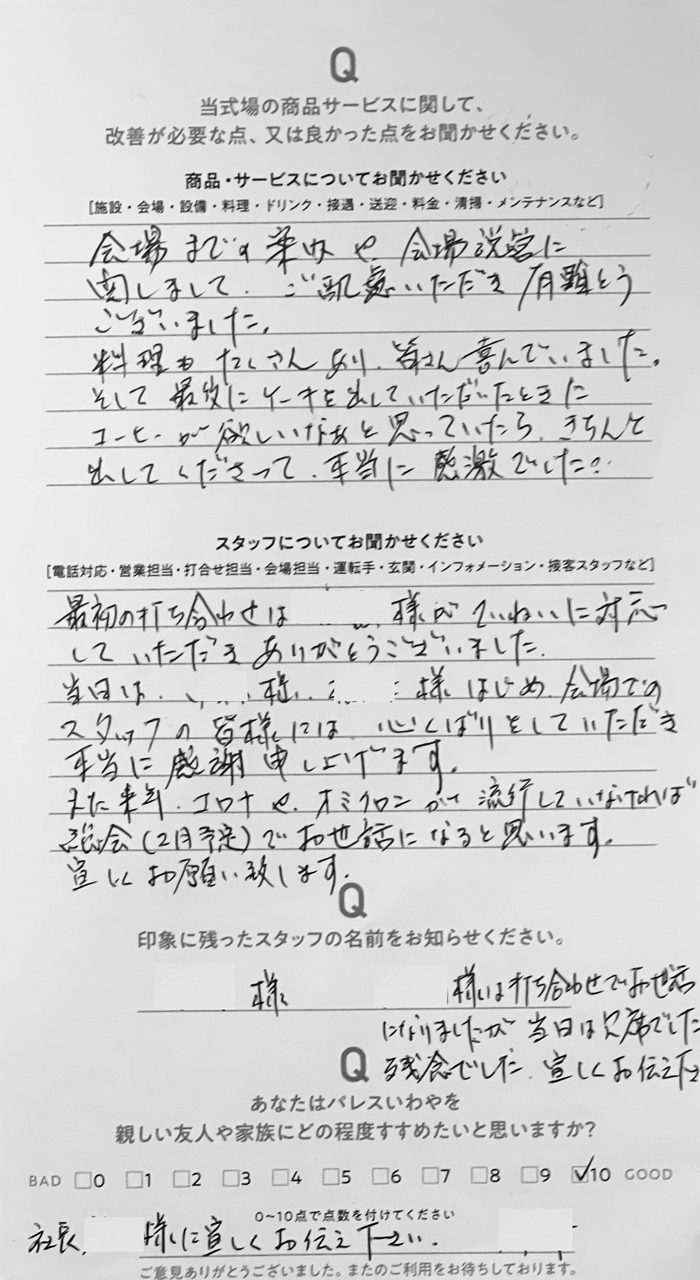 Q
当式場の商品サービスに関して、
改善が必要な点、又は良かった点をお聞かせください。
商品・サービスについてお聞かせください
[施設・会場・設備・料理・ドリンク・接遇・送迎・料金・清掃・メンテナンスなど]
会場までの案内や、会場設営に
関しまして、ご配慮いただき有難とう
ございました。
料理もたくさんあり、皆さん喜んでいました。
そして最後にケーキを出していただいたときに
コーヒーが欲しいなあと思っていたら、きちんと
出してくださって、本当に感激でした。
スタッフについてお聞かせください
[電話対応・営業担当・打合せ担当・会場担当・運転手・玄関・インフォメーション・接客スタッフなど]
最初の打ち合わせは 様がていねいに対応
していただきありがとうございました。
当日は、 様、 様はじめ、会場での
スタッフの皆様には、心くばりをしていただき
本当に感謝申し上げます。
また来年、コロナや、オミクロンが流行していなければ
総会(2月予定)でお世話になると思います。
宜しくお願い致します。
Q
印象に残ったスタッフの名前をお知らせください。
様 様は打ち合わせでお世話
になりましたが当日は欠席でした
残念でした、宜しくお伝え下
Q
あなたはパレスいわやを
親しい友人や家族にどの程度すすめたいと思いますか?
BAD □0 □1 □2 □3 □4 □5 □6 □7 □8 □9 ☑10 GOOD
0~10点で点数を付けてください
社長、 様に宜しくお伝え下さい。
ご意見ありがとうございました。またのご利用をお待ちしております。